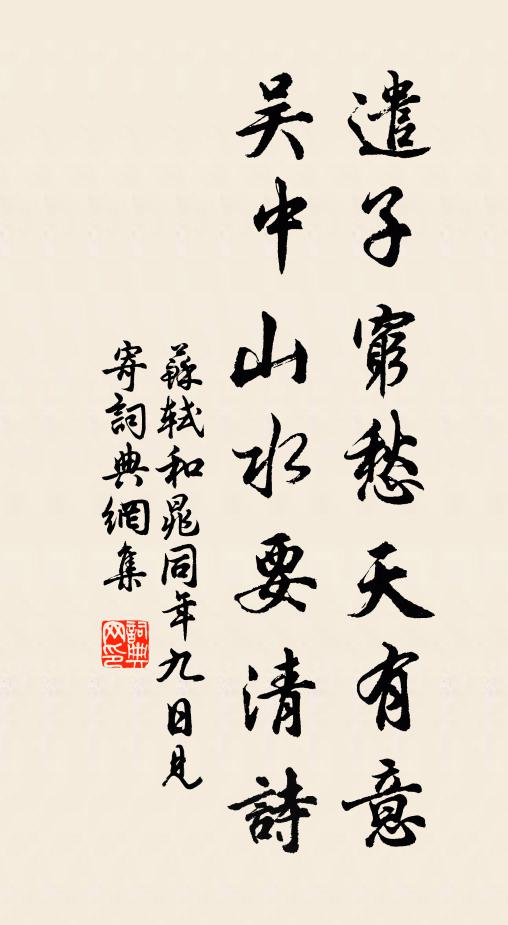 遣子窮愁天有意
吳中山水要清詩
蘇軾和晁同年九日見
寄詞典網集
詞典網印